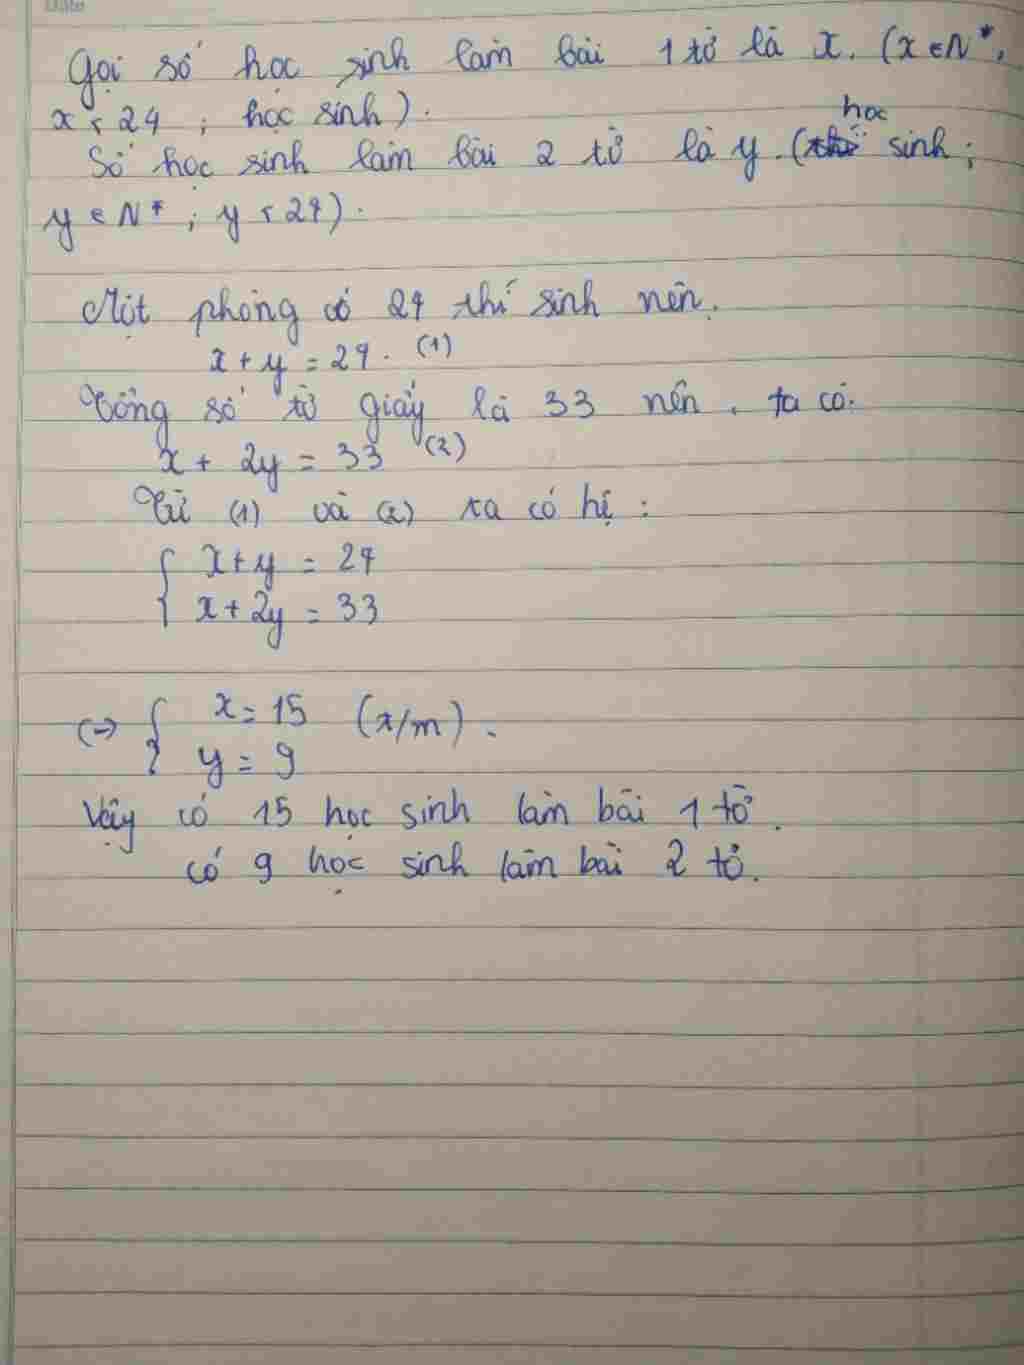 Date
Gọi số học sinh làm bài 1 tờ là x. (x ∈ N*,
x < 24 ; học sinh).
học
Số học sinh làm bài 2 tờ là y. ( sinh ;
y ∈ N* ; y < 24).
Một phòng có 24 thí sinh nên.
x + y = 24. (1)
Tổng số tờ giấy là 33 nên, ta có.
x + 2y = 33 (2)
Từ (1) và (2) ta có hệ :
{ x + y = 24
x + 2y = 33
(=) { x = 15 (t/m).
y = 9
Vậy có 15 học sinh làm bài 1 tờ.
có 9 học sinh làm bài 2 tờ.